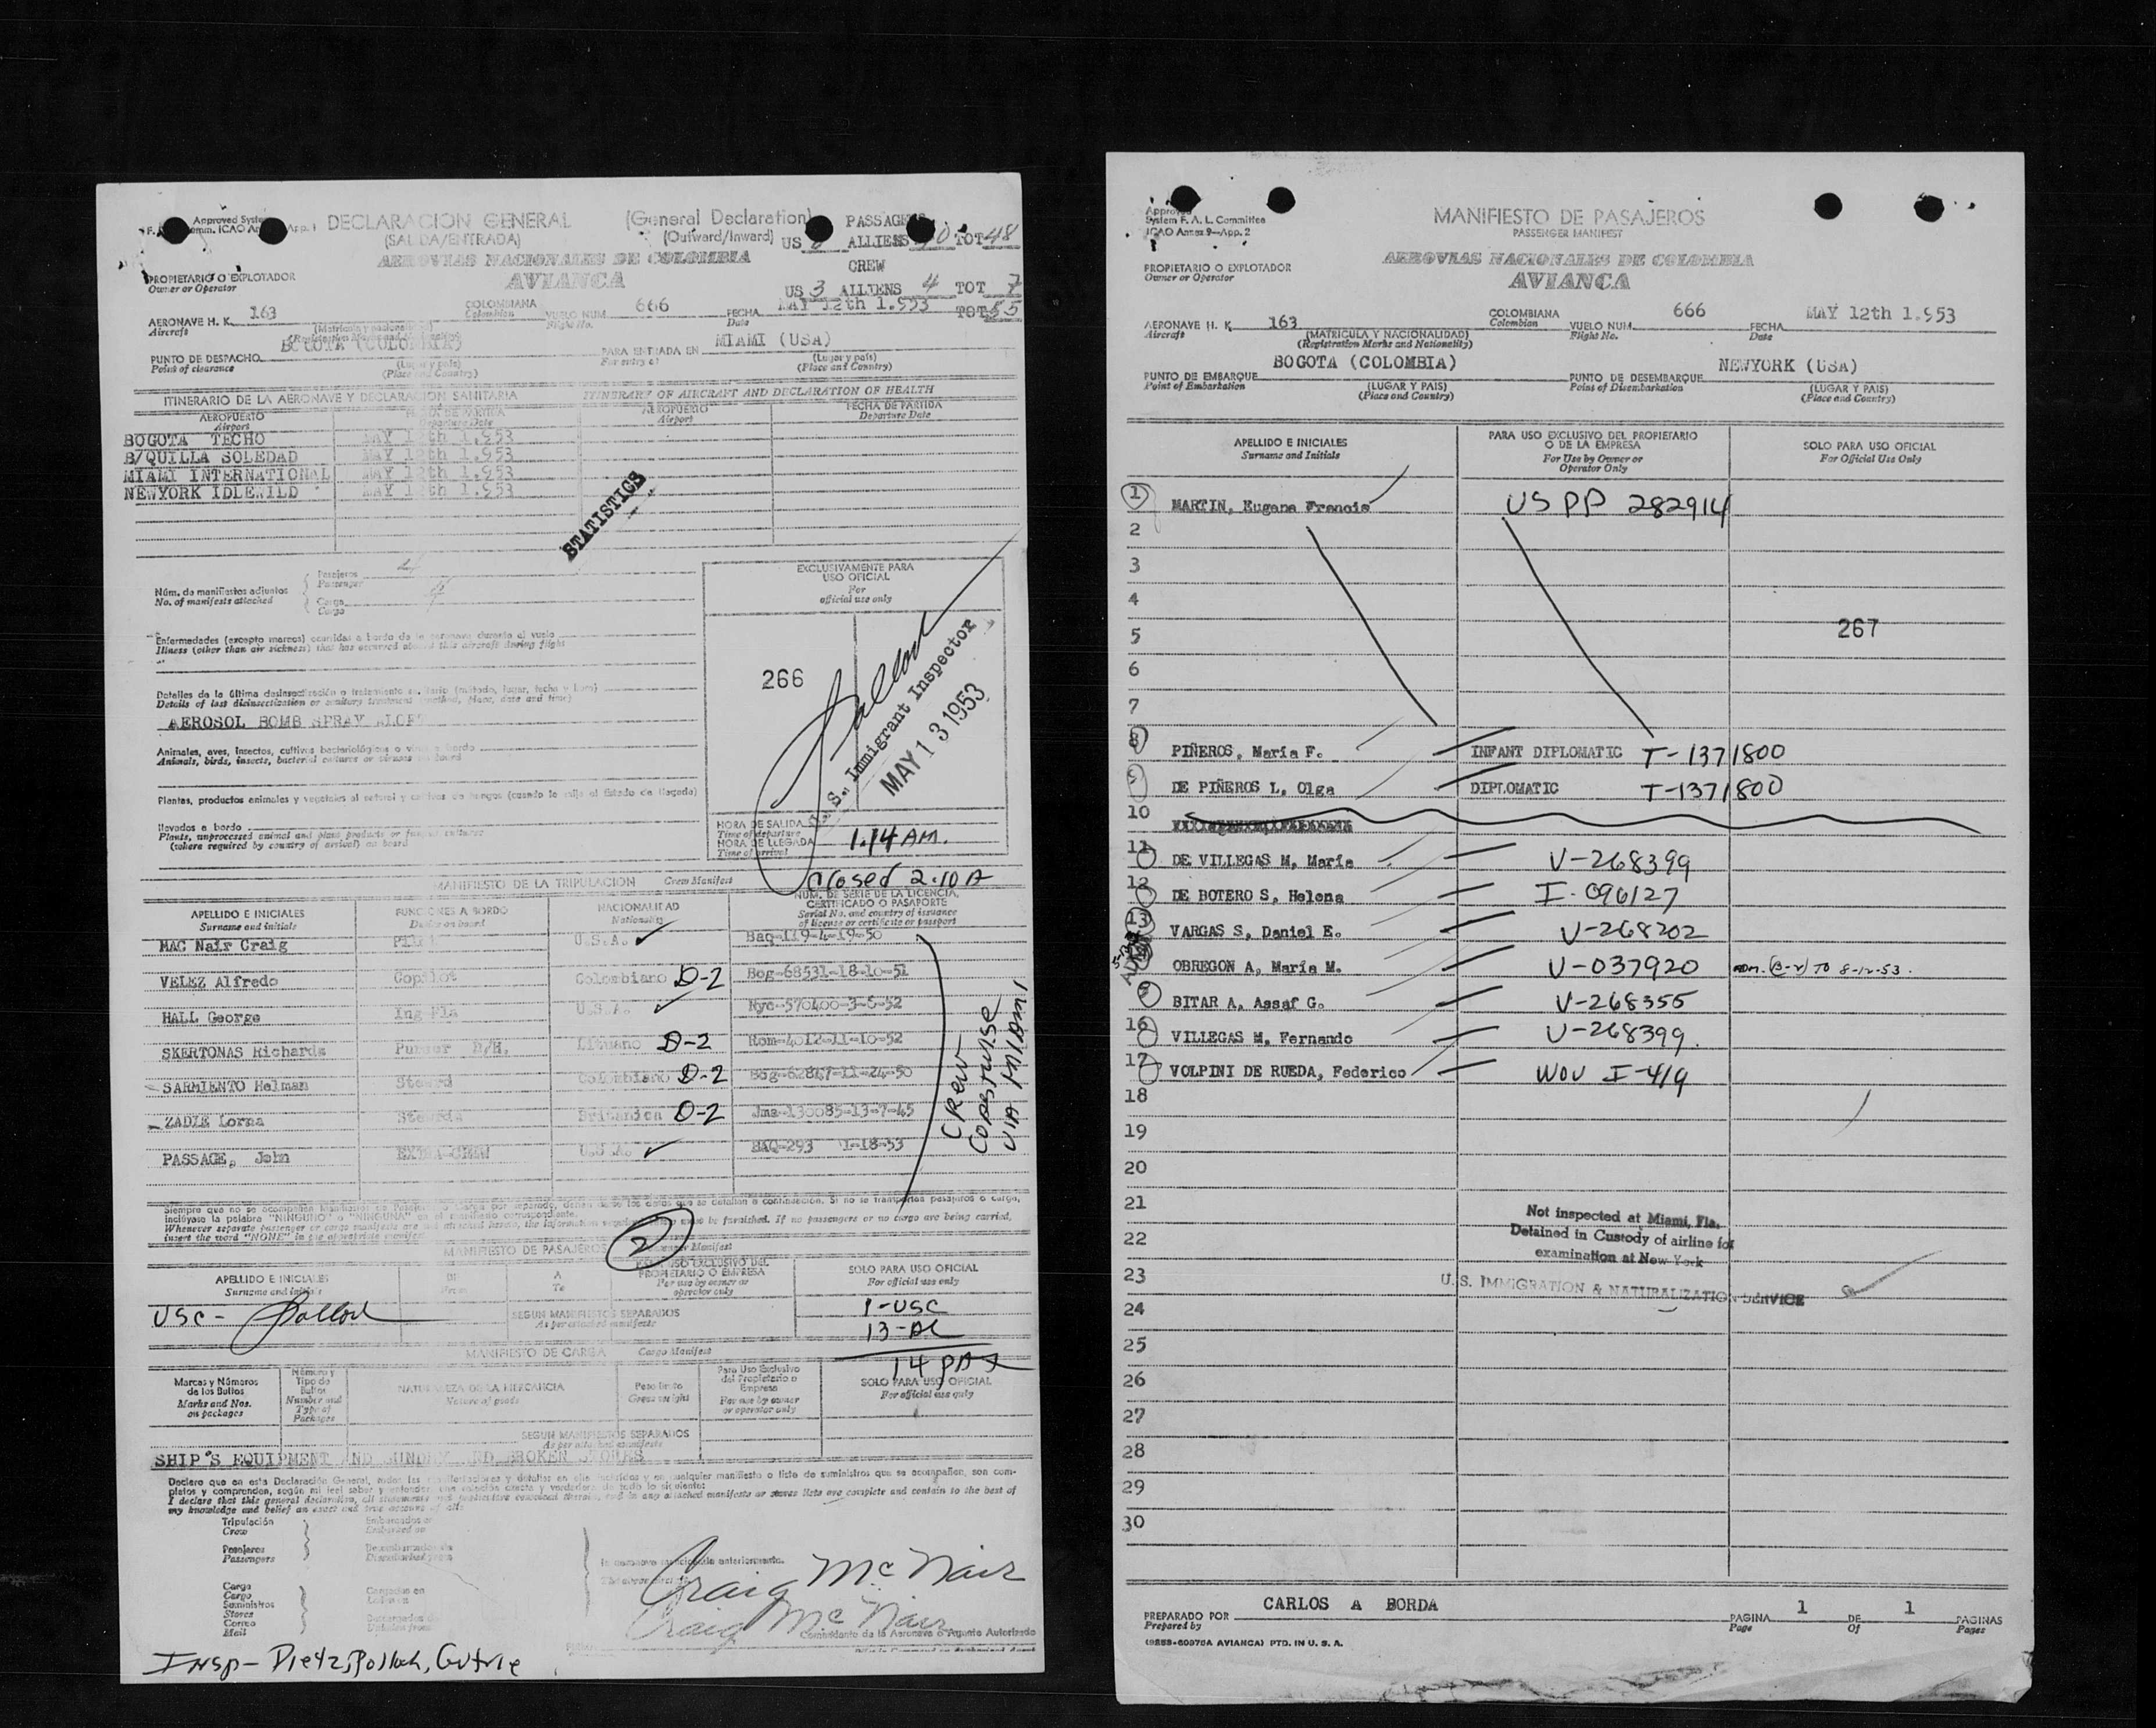 Approved System
F. Comm. ICAO An App. 1
DECLARACION GENERAL (General Declaration)
(SALIDA/ENTRADA) (Outward/Inward)
PASSAGE
US ALLIENS TOT 48
AEROVIAS NACIONALES DE COLOMBIA
AVIANCA
CREW
US 3 ALLIENS 4 TOT 7
TOT 55
PROPIETARIO O EXPLOTADOR
Owner or Operator
AERONAVE H. K. 163 COLOMBIANA VUELO NUM 666 FECHA MAY 12th 1.953
Aircraft Colombian Flight No. Date
(Matricula y nacionalidad)
PUNTO DE DESPACHO BOGOTA (COLOMBIA) PARA ENTRADA EN MIAMI (USA)
Point of clearance (Lugar y país) For entry at (Lugar y país)
(Place and Country) (Place and Country)
ITINERARIO DE LA AERONAVE Y DECLARACION SANITARIA ITINERARY OF AIRCRAFT AND DECLARATION OF HEALTH
AEROPUERTO FECHA DE PARTIDA AEROPUERTO FECHA DE PARTIDA
Airport Departure Date Airport Departure Date
BOGOTA TECHO MAY 12th 1.953
B/QUILLA SOLEDAD MAY 12th 1.953
MIAMI INTERNATIONAL MAY 12th 1.953
NEWYORK IDLEWILD MAY 12th 1.953
STATISTICS
Núm. de manifiestos adjuntos
No. of manifests attached
Pasajeros 4
Passenger
Carga
Cargo
EXCLUSIVAMENTE PARA
USO OFICIAL
For
official use only
266
U. S. Immigrant Inspector
MAY 13 1953
Enfermedades (excepto mareos) ocurridas a bordo de la aeronave durante el vuelo
Illness (other than air sickness) that has occurred aboard this aircraft during flight
Detalles de la última desinsectización o tratamiento sanitario (método, lugar, fecha y hora)
Details of last disinsectization or sanitary treatment (method, place, date and time)
AEROSOL BOMB SPRAY ALOFT
Animales, aves, insectos, cultivos bacteriológicos o virus a bordo
Animals, birds, insects, bacterial cultures or viruses on board
Plantas, productos animales y vegetales al natural y cultivos de hongos (cuando lo exija el Estado de llegada)
llevados a bordo
Plants, unprocessed animal and plant products or fungus cultures
(where required by country of arrival) on board
HORA DE SALIDA
Time of departure
HORA DE LLEGADA 1.14 AM.
Time of arrival
closed 2.10 A
MANIFIESTO DE LA TRIPULACION Crew Manifest
APELLIDO E INICIALES FUNCIONES A BORDO NACIONALIDAD NUM. DE SERIE DE LA LICENCIA,
CERTIFICADO O PASAPORTE
Surname and initials Duties on board Nationality Serial No. and country of issuance
of license or certificate or passport
MAC Nair Craig Pilot U.S.A. Baq-119-4-19-50
VELEZ Alfredo Copilot Colombiano D-2 Bog-68531-18-10-51
HALL George U.S.A. Nyc-570400-3-6-52
SKERTONAS Richards Purser Lituano D-2 Rom-4012-11-10-52
SARMIENTO Helman Steward Colombiano D-2 Bog-62847-11-24-50
ZADIE Lorna Stewards Britanica D-2 Jma-130085-13-7-45
PASSAGE, John EXTRA-CREW U.S.A. BAQ-293 1-18-53
CREW
COASTWISE
VIA MIAMI
Siempre que no se acompañen Manifiestos de Pasajeros o Carga por separado, deben darse los datos que se detallan a continuación. Si no se transportan pasajeros o carga,
inclúyase la palabra "NINGUNO" o "NINGUNA" en el manifiesto correspondiente.
Whenever separate passenger or cargo manifests are not attached hereto, the information required must be furnished. If no passengers or no cargo are being carried,
insert the word "NONE" in the appropriate manifest
2
MANIFIESTO DE PASAJEROS Passenger Manifest
APELLIDO E INICIALES DE A PARA USO EXCLUSIVO DEL PROPIETARIO O EMPRESA SOLO PARA USO OFICIAL
Surname and initials From To For use by owner or operator only For official use only
USC -
SEGUN MANIFIESTOS SEPARADOS
As per attached manifests
1-USC
13-AL
14 PAX
MANIFIESTO DE CARGA Cargo Manifest
Marcas y Números
de los Bultos
Marks and Nos.
on packages
Número y
Tipo de
Bultos
Number and
Type of
Packages
NATURALEZA DE LA MERCANCIA
Nature of goods
Peso bruto
Gross weight
Para Uso Exclusivo
del Propietario o
Empresa
For use by owner
or operator only
SOLO PARA USO OFICIAL
For official use only
SEGUN MANIFIESTOS SEPARADOS
As per attached manifests
SHIP'S EQUIPMENT AND SUNDRY AND BROKEN STORES
Declaro que en esta Declaración General, todas las manifestaciones y detalles en ella incluidos y en cualquier manifiesto o lista de suministros que se acompañan, son completos y comprenden, según mi leal saber y entender,
I declare that this general declaration, all statements and particulars contained therein, and in any attached manifests or stores lists are complete and contain to the best of
my knowledge and belief an exact and true account of all:
Tripulación
Crew
Embarcados en
Embarked on
Pasajeros
Passengers
Carga
Cargo
Suministros
Stores
Correo
Mail
Cargados en
Craig McNair
Craig McNair
Comandante de la Aeronave o Agente Autorizado
Insp - Dietz, Pollack, Gutrie
Approved
System F. A. L. Committee
ICAO Annex 9—App. 2
MANIFIESTO DE PASAJEROS
PASSENGER MANIFEST
PROPIETARIO O EXPLOTADOR
Owner or Operator
AEROVIAS NACIONALES DE COLOMBIA
AVIANCA
AERONAVE H. K. 163 COLOMBIANA VUELO NUM. 666 FECHA MAY 12th 1.953
Aircraft (MATRICULA Y NACIONALIDAD) Colombian Flight No. Date
(Registration Marks and Nationality)
PUNTO DE EMBARQUE BOGOTA (COLOMBIA) PUNTO DE DESEMBARQUE NEWYORK (USA)
Point of Embarkation (LUGAR Y PAIS) Point of Disembarkation (LUGAR Y PAIS)
(Place and Country) (Place and Country)
APELLIDO E INICIALES
Surname and Initials
PARA USO EXCLUSIVO DEL PROPIETARIO
O DE LA EMPRESA
For Use by Owner or
Operator Only
SOLO PARA USO OFICIAL
For Official Use Only
1 MARTIN, Eugene Francis US PP 282914
2
3
4
5 267
6
7
8 PIÑEROS, Maria F. INFANT DIPLOMATIC T-1371800
9 DE PIÑEROS L, Olga DIPLOMATIC T-1371800
10
11 DE VILLEGAS M, Maria V-268399
12 DE BOTERO S, Helena I-096127
13 VARGAS S, Daniel E. V-268202
OBREGON A, Maria M. V-037920 ADM. (B-2) TO 8-12-53.
BITAR A, Assaf G. V-268355
16 VILLEGAS M, Fernando V-268399.
17 VOLPINI DE RUEDA, Federico WOV I-419
18
19
20
21
22
23
24
25
26
27
28
29
30
Not inspected at Miami, Fla.
Detained in Custody of airline for
examination at New York
U.S. IMMIGRATION & NATURALIZATION SERVICE
PREPARADO POR CARLOS A BORDA PAGINA 1 DE 1 PAGINAS
Prepared by Page Of Pages
(9258-60376A AVIANCA) PTD. IN U. S. A.